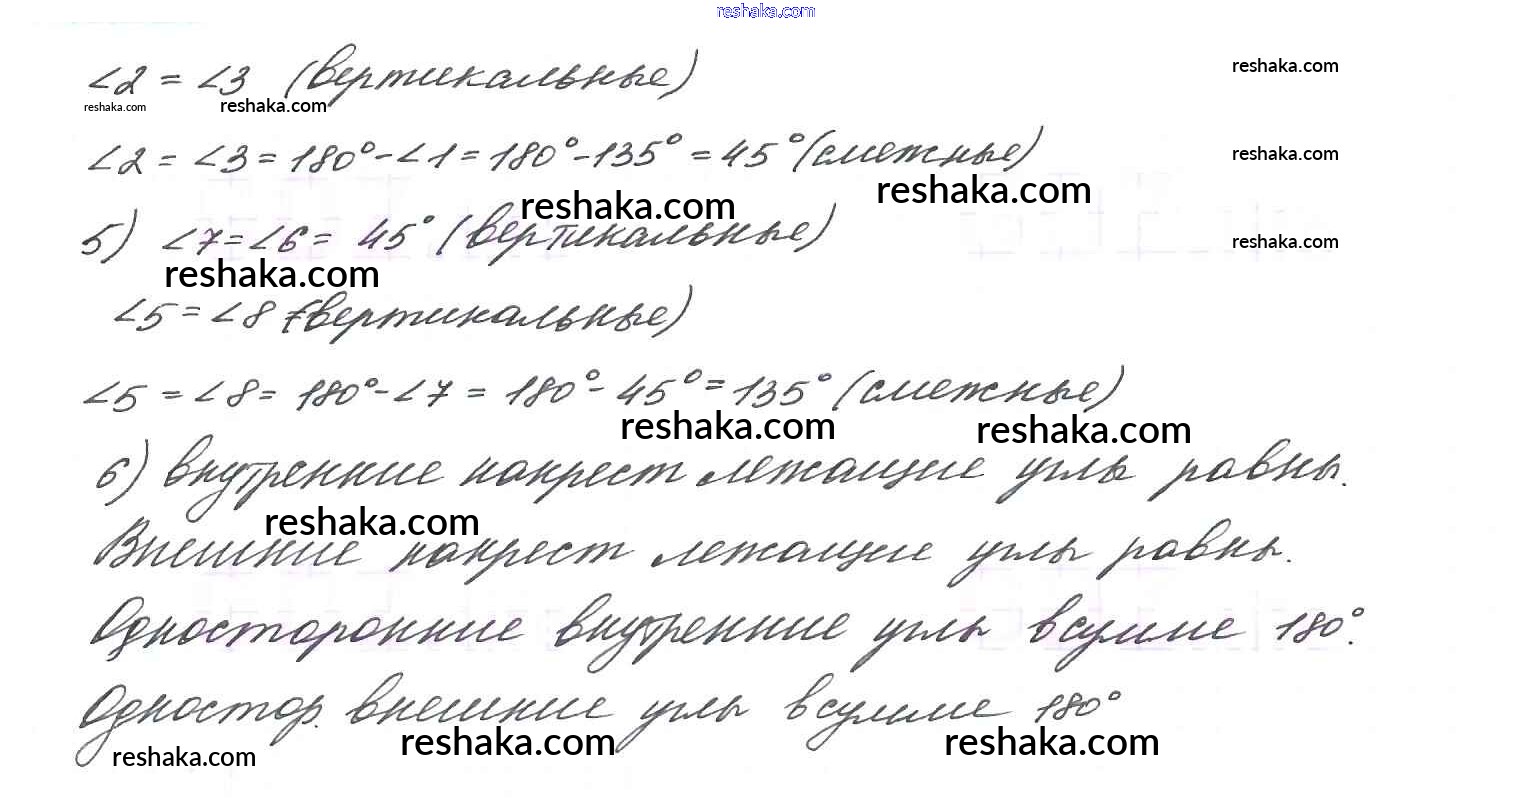 reshaka.com
∠2 = ∠3 (вертикальные)
reshaka.com
reshaka.com reshaka.com
∠2 = ∠3 = 180° - ∠1 = 180° - 135° = 45° (смежные)
reshaka.com
reshaka.com reshaka.com
5) ∠7 = ∠6 = 45° (вертикальные)
reshaka.com
reshaka.com
∠5 = ∠8 (вертикальные)
∠5 = ∠8 = 180° - ∠7 = 180° - 45° = 135° (смежные)
reshaka.com reshaka.com
6) внутренние накрест лежащие углы равны.
reshaka.com
Внешние накрест лежащие углы равны.
Односторонние внутренние углы в сумме 180°.
Одностор. внешние углы в сумме 180°
reshaka.com reshaka.com reshaka.com